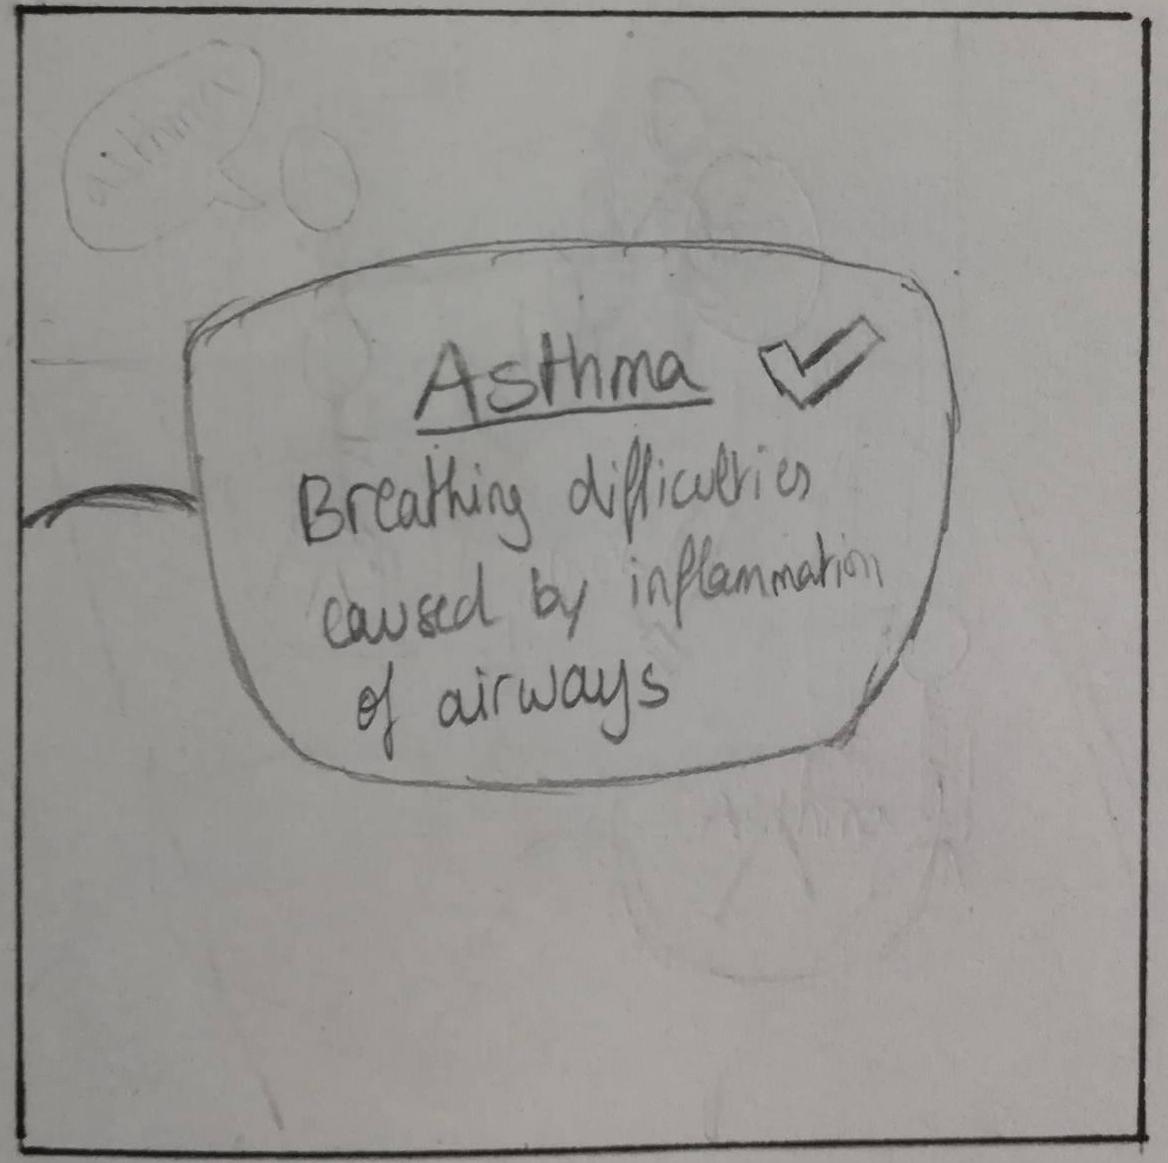 asthma
Asthma
Breathing difficulties
caused by inflammation
of airways
Asthma